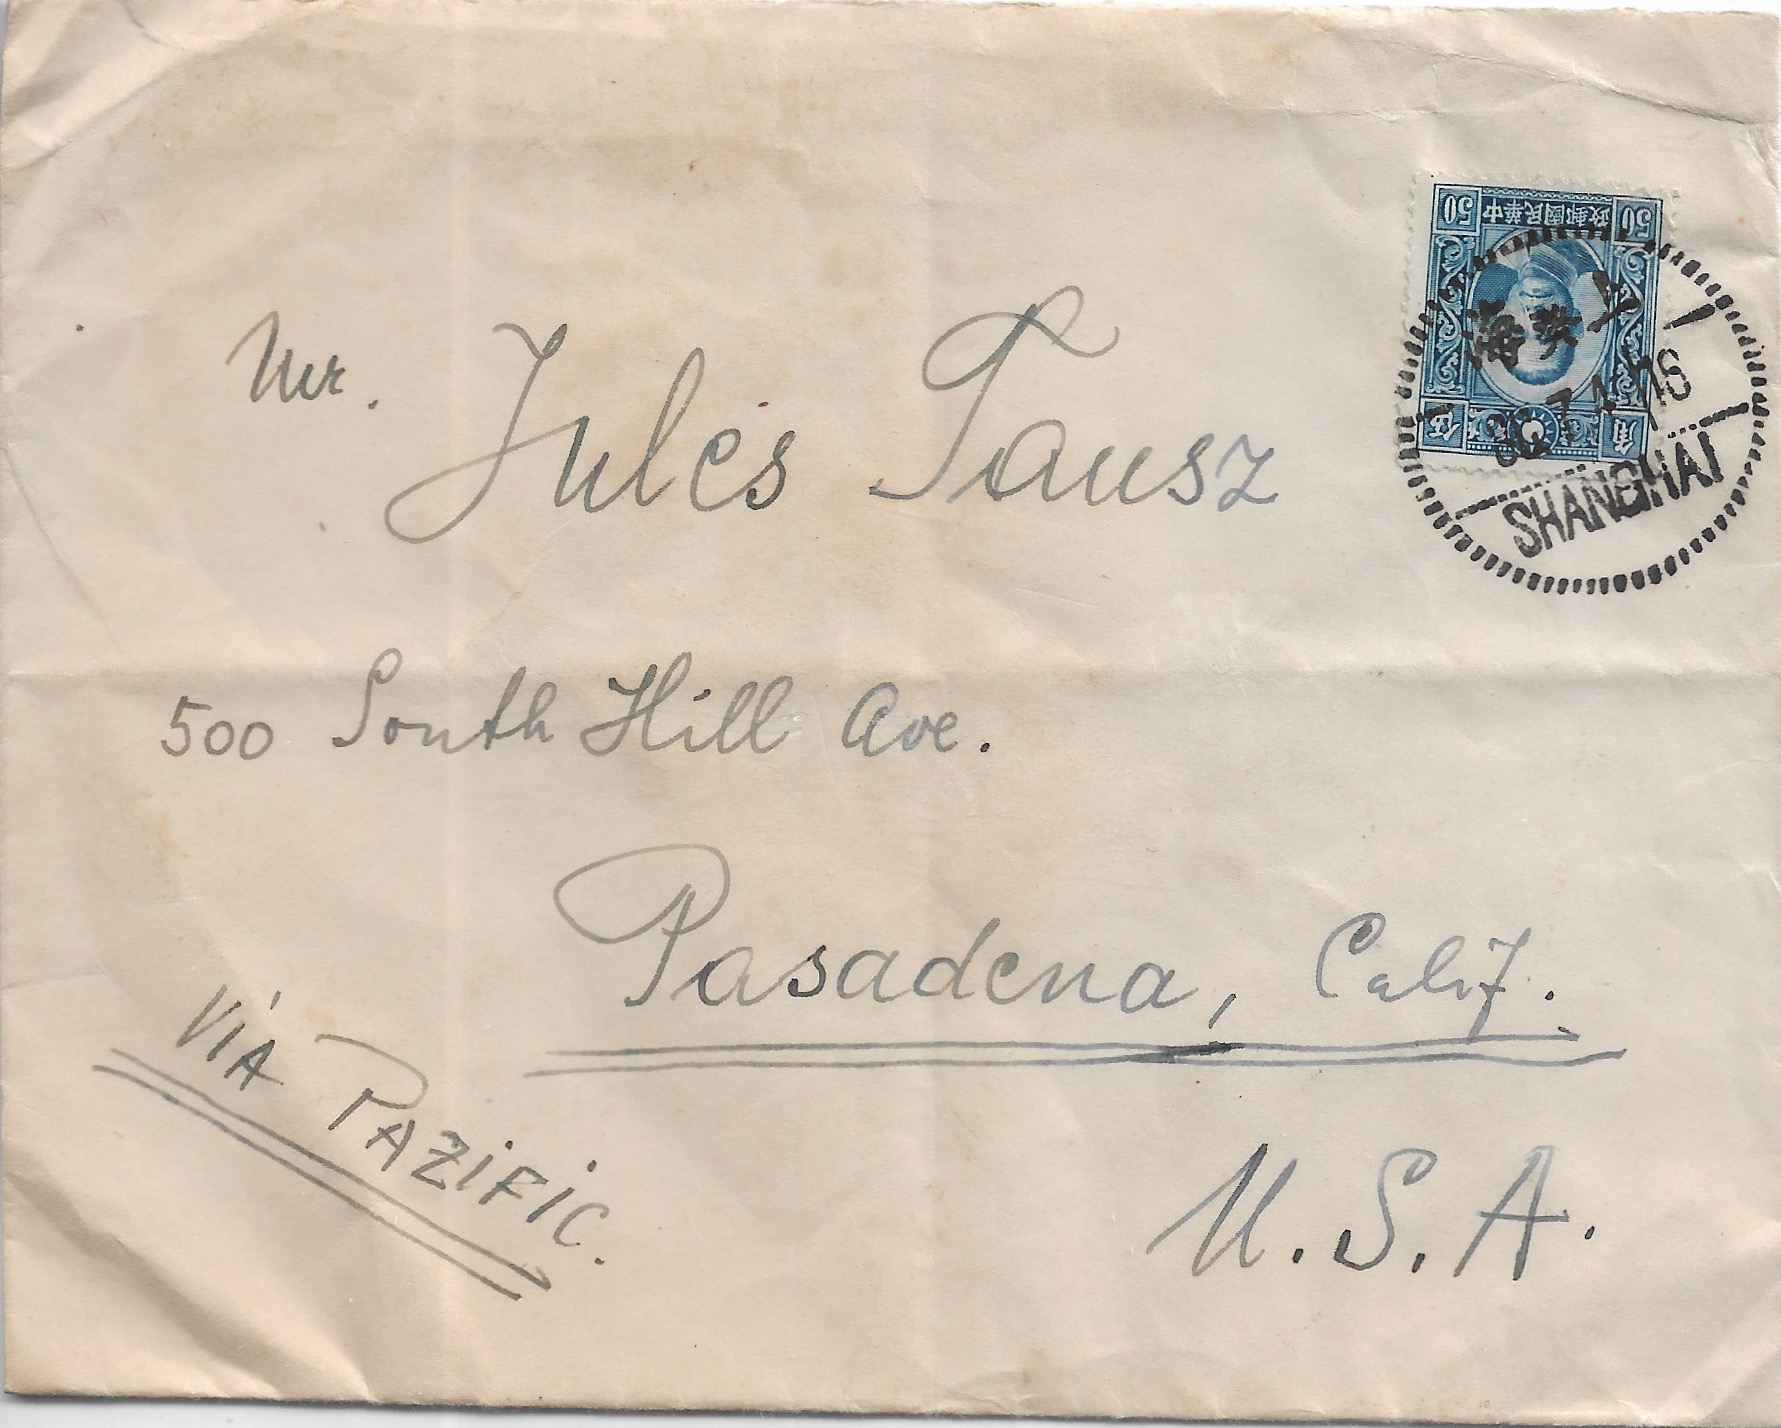 50 中華民國郵政 50
伍 角
上海
30. 7. 41. 18
SHANGHAI
Mr. Jules Tausz
500 South Hill Ave.
Pasadena, Calif.
VIA PAZIFIC.
U.S.A.